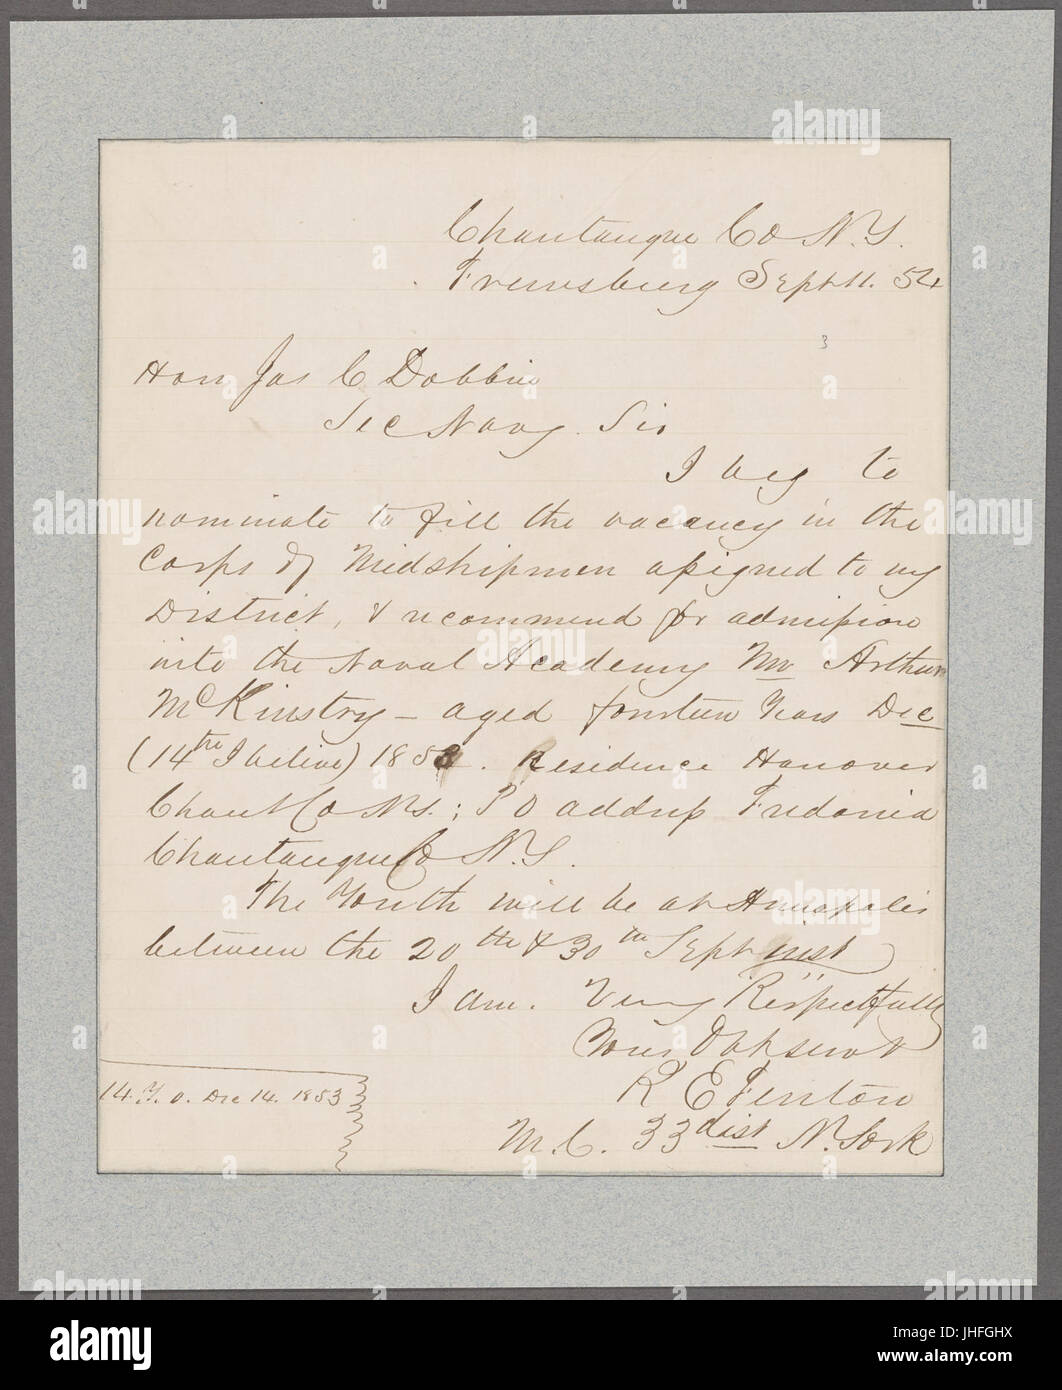 Chautauque Co N.Y.
Frewsburg Sept 11. 54
3
Hon Jas C Dobbin
Sec Navy. Sir
I beg to
nominate to fill the vacancy in the
Corps of Midshipmen assigned to my
District, & recommend for admission
into the Naval Academy Mr Arthur
McKinstry – aged fourteen Years Dec
(14th I believe) 1853. Residence Hanover
Chaut Co N.Y.; P O address Fredonia
Chautauque Co N.Y.
The Youth will be at Annapolis
between the 20th & 30th Sept inst
I am. Very Respectfully
Your Obt servt
R E Fenton
M.C. 33 dist N. York
14. Y. o. Dec 14. 1853
alamy
Image ID: JHFGHX
www.alamy.com